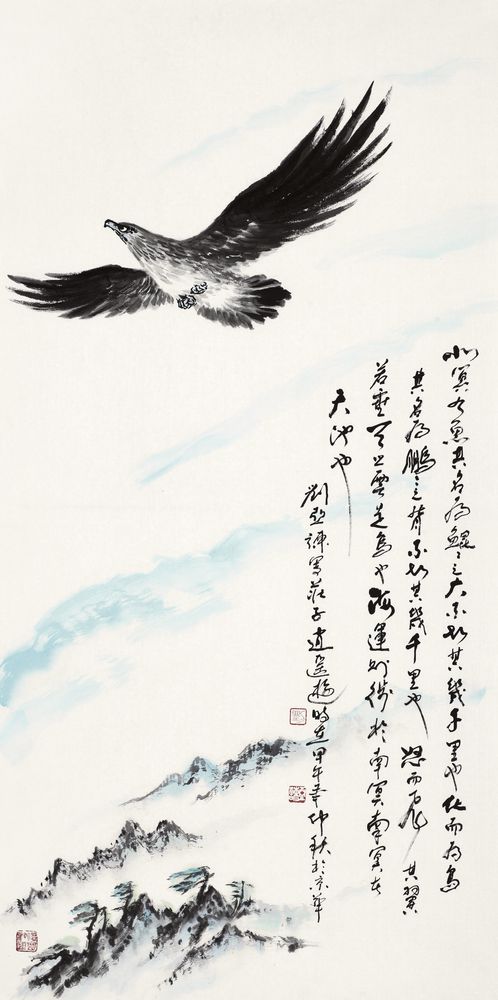 北冥有魚其名为鯤〻之大不知其幾千里也化而为鳥
其名为鵬〻之背不知其幾千里也怒而飛其翼
若垂天之雲是鳥也海運則徙於南冥南冥者
天池也
劉亞諫寫莊子逍遙遊時在甲午年仲秋於京華